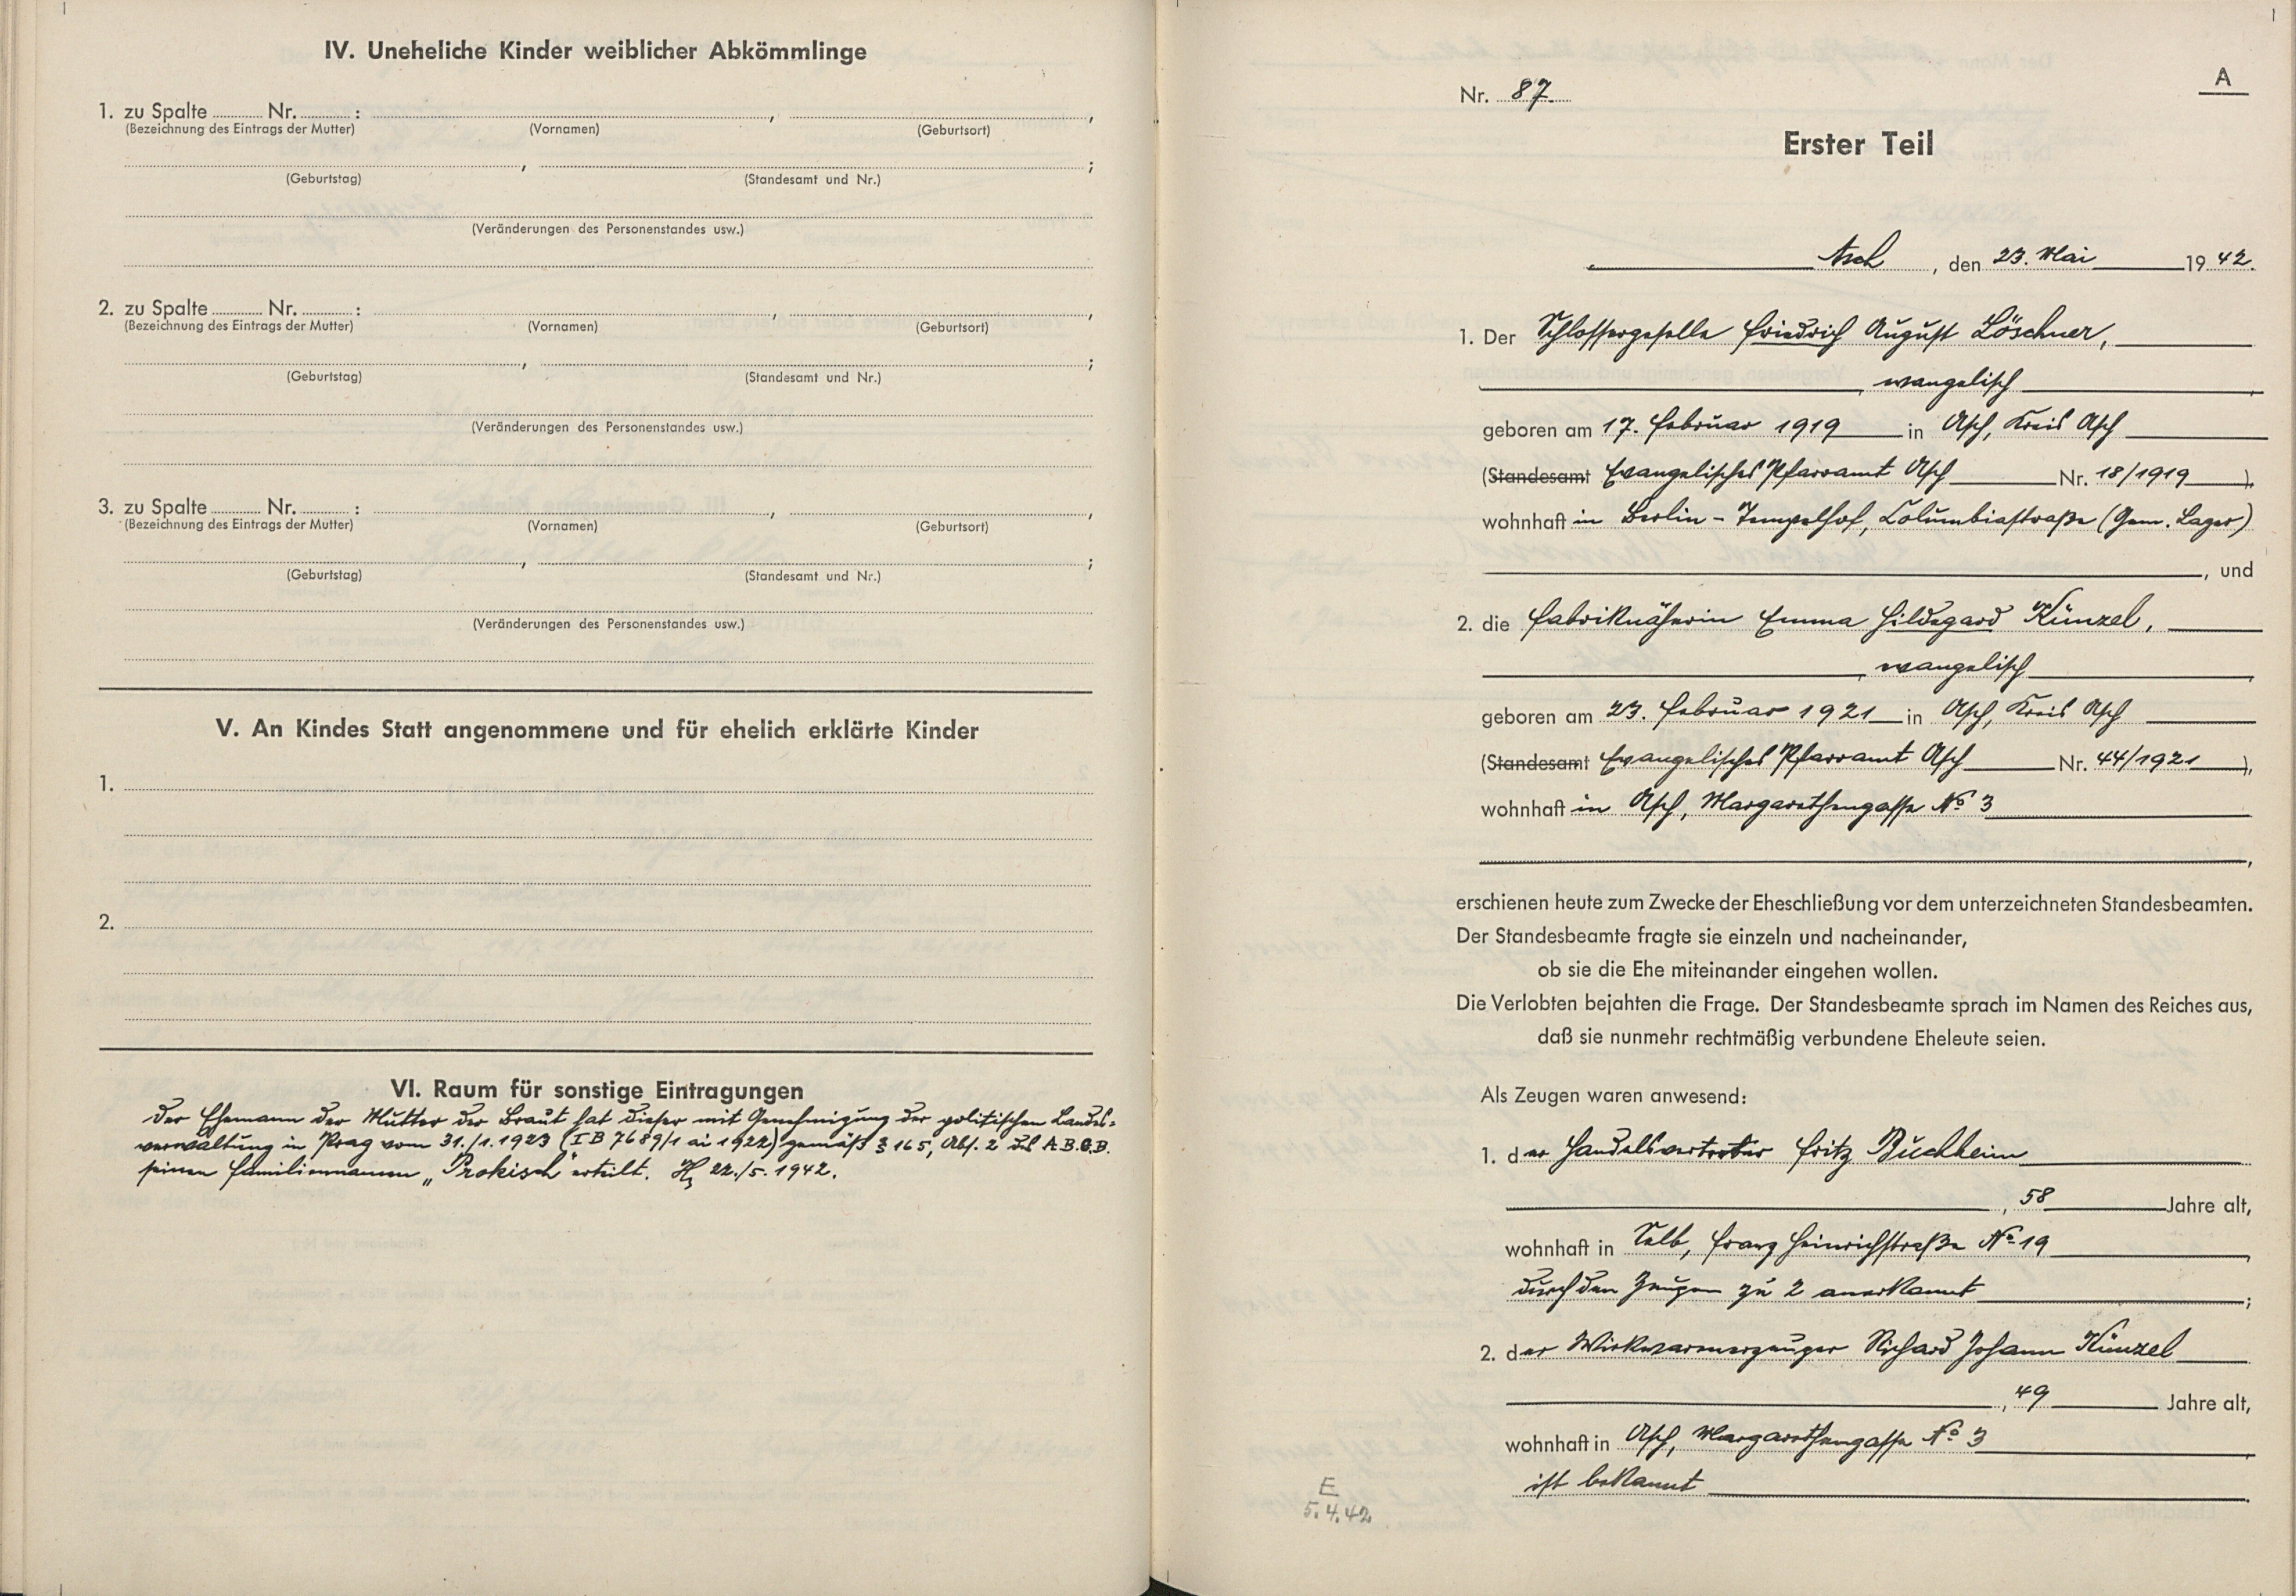 IV. Uneheliche Kinder weiblicher Abkömmlinge
1. zu Spalte ........ Nr. ........ : ........ , ........ ,
(Bezeichnung des Eintrags der Mutter) (Vornamen) (Geburtsort)
........ , ........ ;
(Geburtstag) (Standesamt und Nr.)
(Veränderungen des Personenstandes usw.)
2. zu Spalte ........ Nr. ........ : ........ , ........ ,
(Bezeichnung des Eintrags der Mutter) (Vornamen) (Geburtsort)
........ , ........ ;
(Geburtstag) (Standesamt und Nr.)
(Veränderungen des Personenstandes usw.)
3. zu Spalte ........ Nr. ........ : ........ , ........ ,
(Bezeichnung des Eintrags der Mutter) (Vornamen) (Geburtsort)
........ , ........ ;
(Geburtstag) (Standesamt und Nr.)
(Veränderungen des Personenstandes usw.)
V. An Kindes Statt angenommene und für ehelich erklärte Kinder
1.
2.
VI. Raum für sonstige Eintragungen
Der Ehemann der Mutter der Braut hat dieser mit Genehmigung der politischen Landes-
verwaltung in Prag vom 31./1. 1923 (I B 7689/1 ai 1922) gemäß § 165, Abs. 2 des A.B.G.B.
seinen Familiennamen „Prokisch" erteilt. 22./5. 1942.
A
Nr. 87.
Erster Teil
Asch, den 23. Mai 1942.
1. Der Schlossergeselle Friedrich August Löschner,
, evangelisch
geboren am 17. Februar 1919 in Asch, Kreis Asch
(Standesamt Evangelisches Pfarramt Asch Nr. 18/1919 ),
wohnhaft in Berlin - Tempelhof, Columbiastraße (Gem. Lager)
, und
2. die Fabriknäherin Emma Hildegard Künzel,
, evangelisch ,
geboren am 23. Februar 1921 in Asch, Kreis Asch
(Standesamt Evangelisches Pfarramt Asch Nr. 44/1921 ),
wohnhaft in Asch, Margarethengasse No 3
,
erschienen heute zum Zwecke der Eheschließung vor dem unterzeichneten Standesbeamten.
Der Standesbeamte fragte sie einzeln und nacheinander,
ob sie die Ehe miteinander eingehen wollen.
Die Verlobten bejahten die Frage. Der Standesbeamte sprach im Namen des Reiches aus,
daß sie nunmehr rechtmäßig verbundene Eheleute seien.
Als Zeugen waren anwesend:
1. der Handelsvertreter Fritz Buchheim
, 58 Jahre alt,
wohnhaft in Selb, Franz Heinrichstraße No 19
durch den Zeugen zu 2 anerkannt ;
2. der Wirkwarenerzeuger Richard Johann Künzel
, 49 Jahre alt,
wohnhaft in Asch, Margarethengasse No 3
ist bekannt .
E
5.4.42